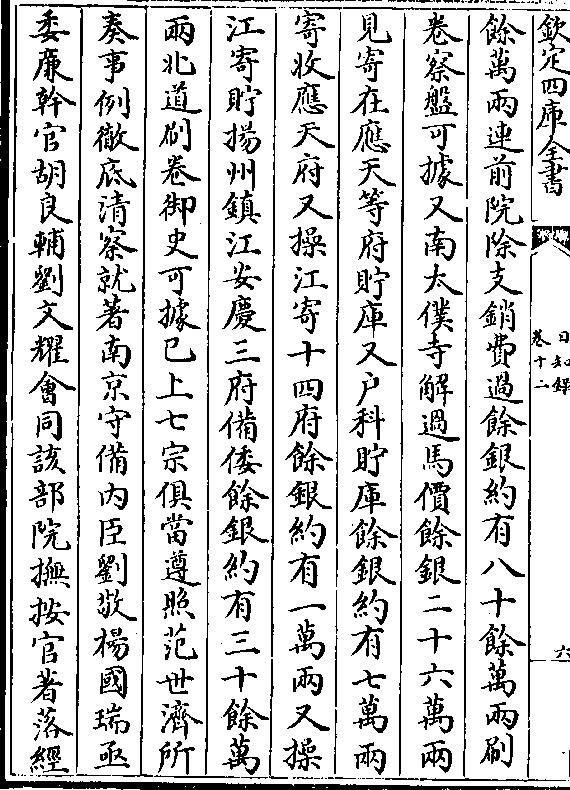 欽定四庫全書
日知録
卷十二
六
餘萬兩連前院除支銷費過餘銀約有八十餘萬兩刷
卷察盤可據又南太僕寺解過馬價餘銀二十六萬兩
見寄在應天等府貯庫又户科貯庫餘銀約有七萬兩
寄收應天府又操江寄十四府餘銀約有一萬兩又操
江寄貯揚州鎮江安慶三府備倭餘銀約有三十餘萬
兩北道刷卷御史可據已上七宗俱當遵照范世濟所
奏事例徹底清察就著南京守備内臣劉敬楊國瑞亟
委廉幹官胡良輔劉文耀會同該部院撫按官著落經